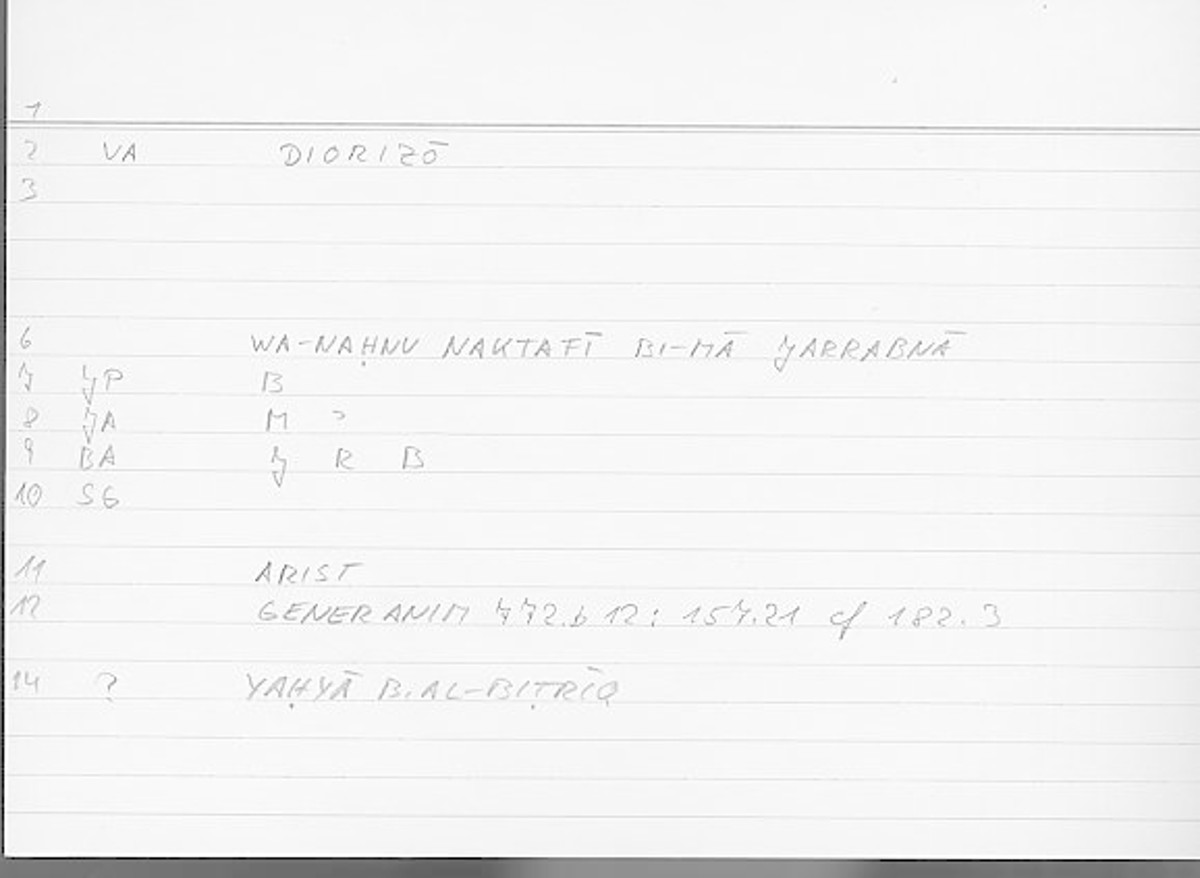 1
2 VA DIORIZŌ
3
6 WA-NAḤNU NAKTAFĪ BI-MĀ JARRABNĀ
7 JP B
8 JA M ʾ
9 BA J R B
10 SG
11 ARIST
12 GENER ANIM 772.b 12: 157.21 cf 182.3
14 ? YAḤYĀ B. AL-BIṬRĪQ